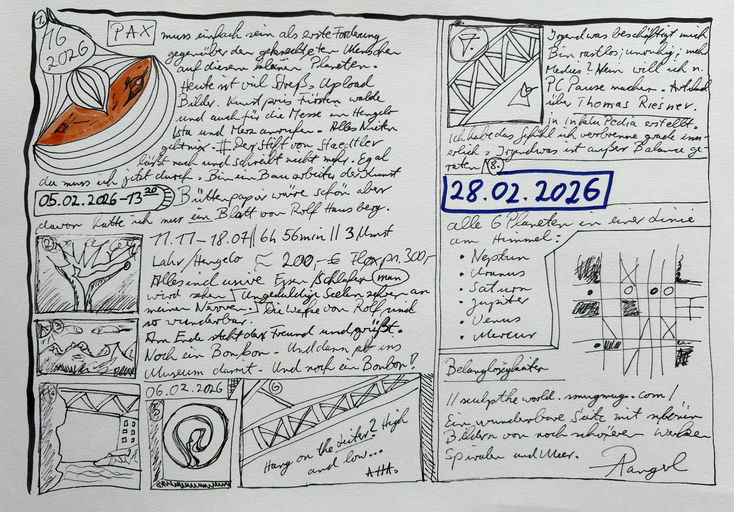 1.
16
2026
PAX muss einfach sein als erste Forderung
gegenüber den geknechteten Menschen
auf diesem kleinen Planeten.
Heute ist viel Streß. Upload
Bilder. Kunstpreis Fürstenwalde
und auch für die Messe in Hengelo
Ista und Mara anrufen. Alles Nieten
geht nix. # Der Stift von Staedtler
läßt nach und schreibt nicht mehr. Egal
da muss ich jetzt durch. Bin ein Bauarbeiter der Kunst
05.02.2026-13 20 Büttenpapier wäre schön aber
davon hatte ich nur ein Blatt von Rolf Hausberg.
2.
11.11-18.07 || 6h 56min || 3 Umst
Lahr/Hengelo ≈ 200,-€ Flexpr. 300,-
Alles ind usive Essen/Schlafen man
wird sehen. Ungeduldige Seelen zehren an
meinen Nerven. Die Werke von Rolf sind
so wunderbar.
3.
Am Ende steht der Freund und grüßt.
Noch ein Bonbon. Und dann ab ins
Museum damit. Und noch ein Bonbon!
4.
06.02.2026
5.
6.
Hang on the Leiter? High
and low...
AHA.
7.
Irgendwas beschäftigt mich
Bin rastlos, unruhig, mehr
Medis? Nein will ich n.
PC Pause machen. Artikel
über Thomas Riesner.
in InfaluPedia erstellt.
Ich habe das Gefühl ich verbrenne gerade inn-
erlich. Irgendwas ist außer Balance ge-
raten 8.
28.02.2026
alle 6 Planeten in einer Linie
am Himmel:
• Neptun
• Uranus
• Saturn
• Jupiter
• Venus
• Merkur
Belanglosigkeiten
//sculptheworld.smugmug.com/
Ein wunderbare Seite mit schönen
Bildern von noch schöneren Werken
Spiralen und Meer.